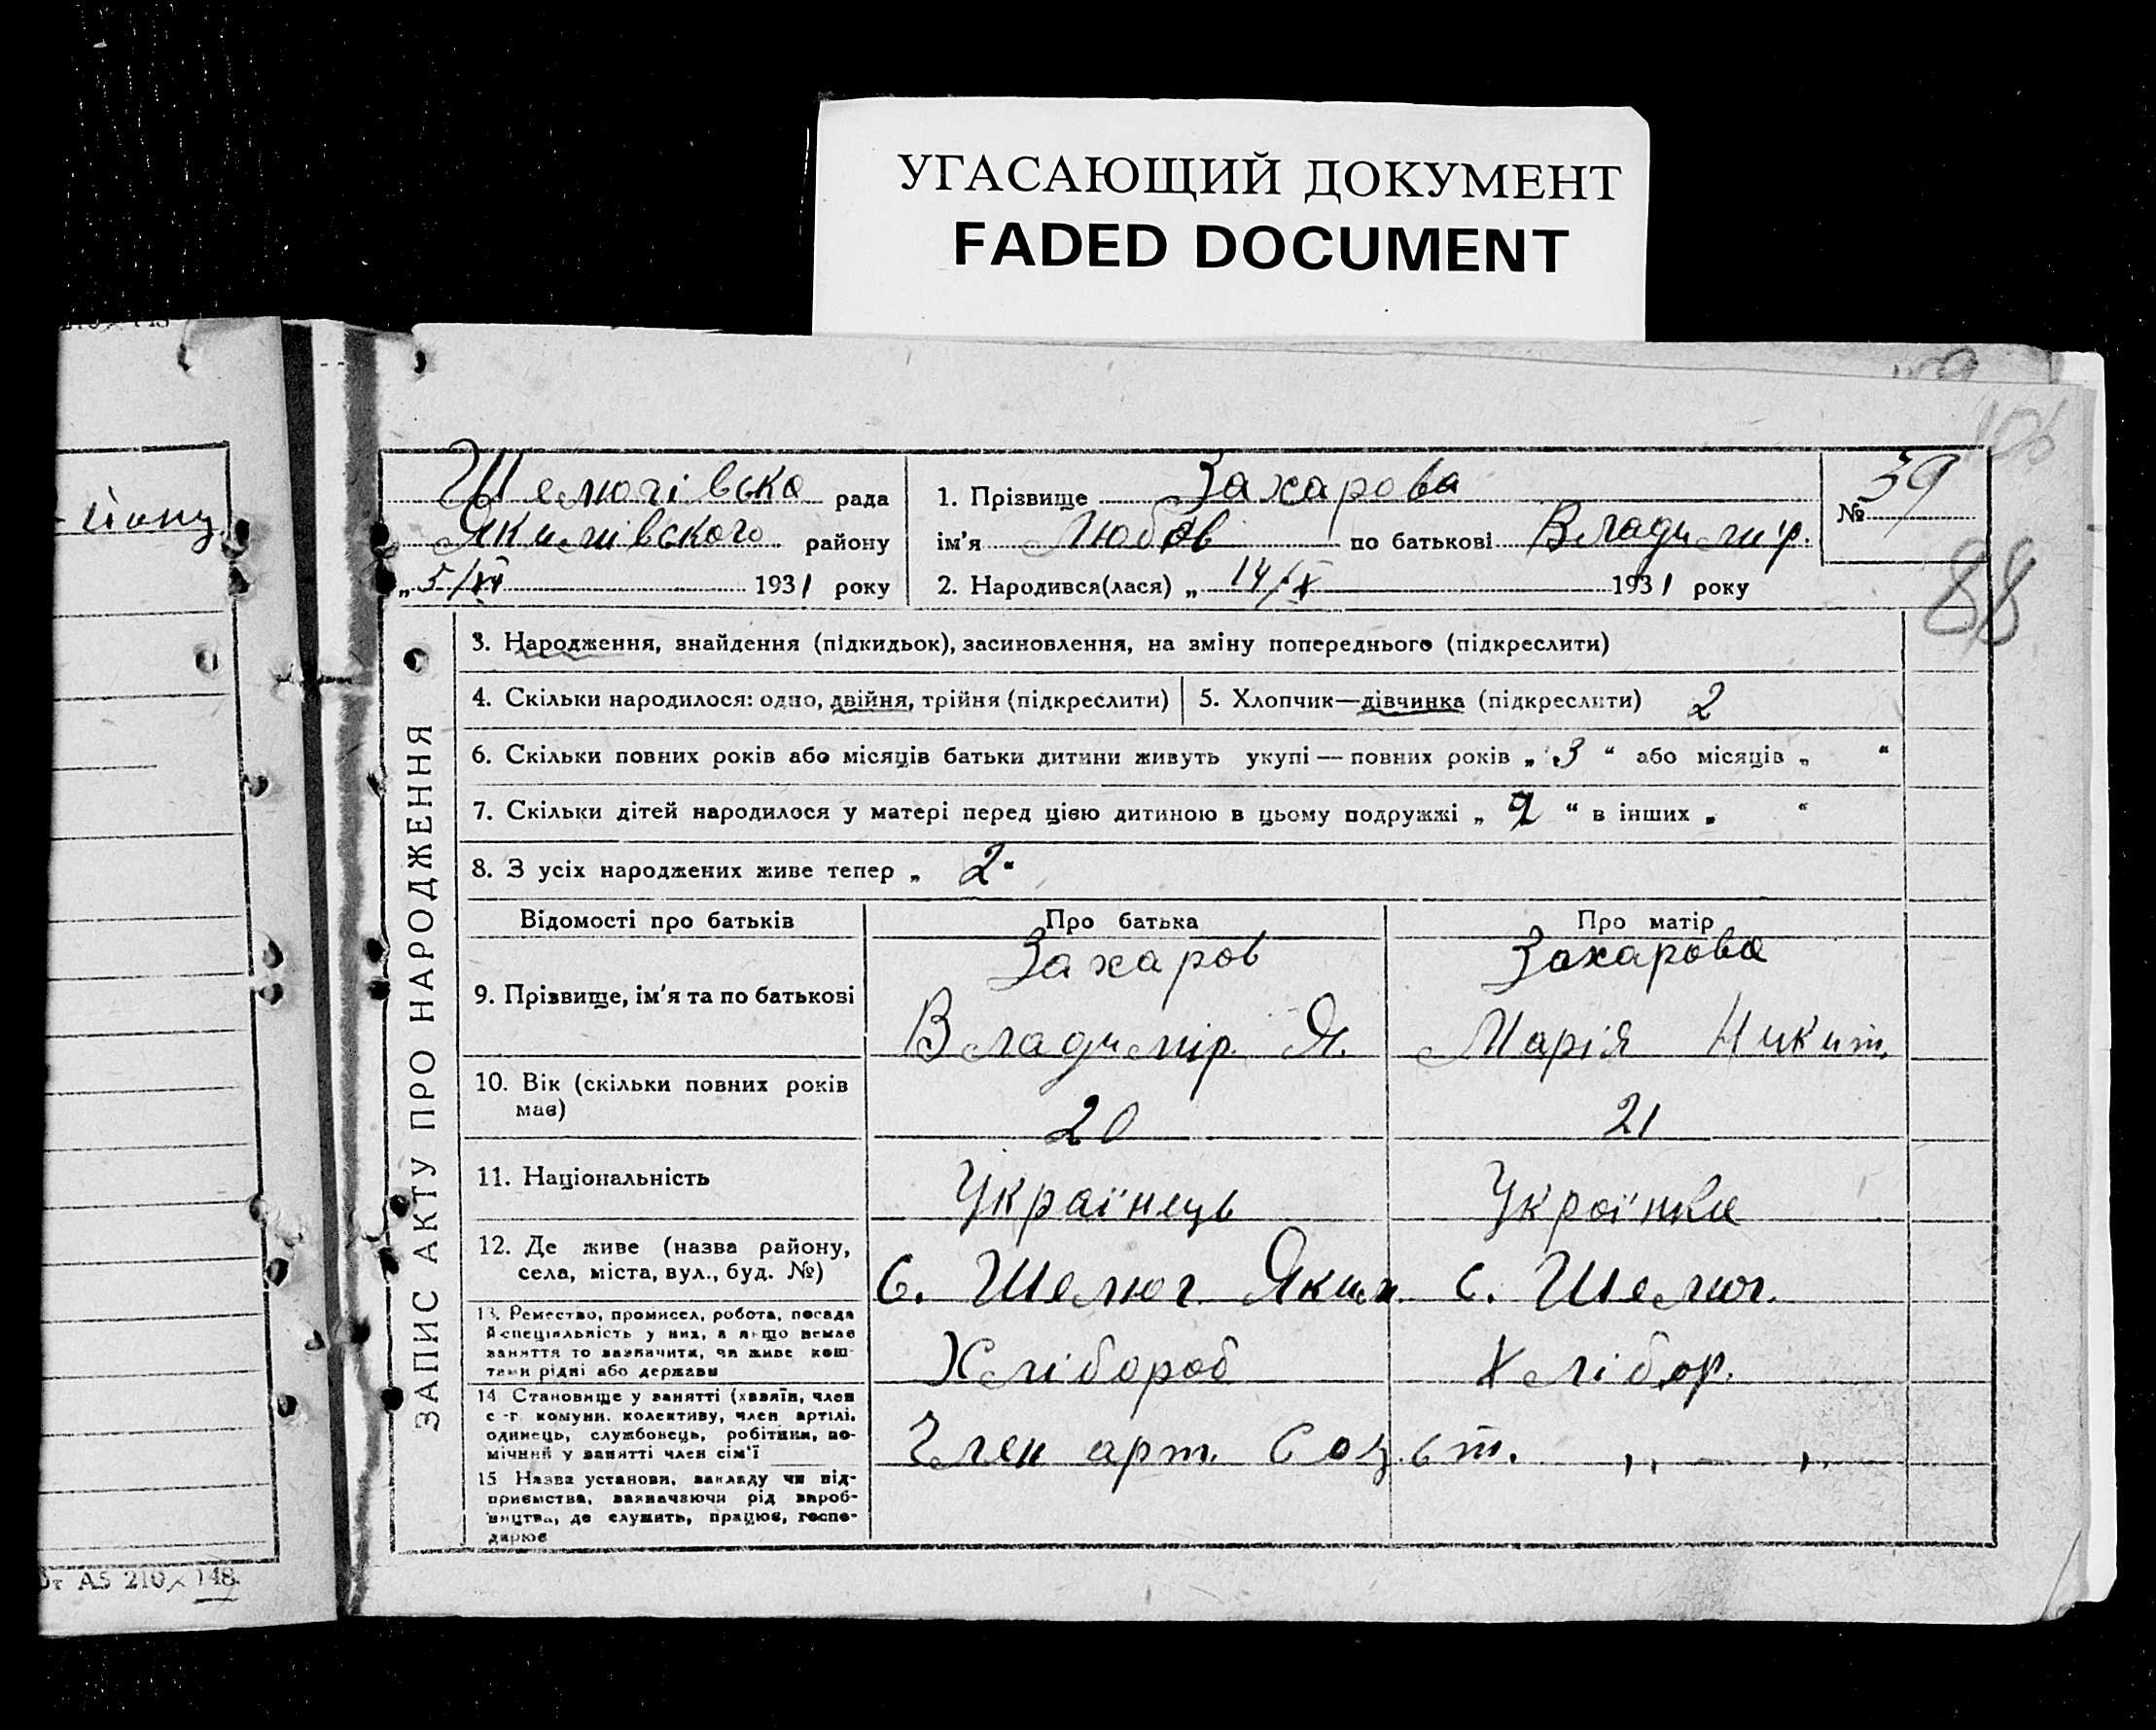 УГАСАЮЩИЙ ДОКУМЕНТ
FADED DOCUMENT
106
Шелюгівська рада
Якимівського району
„5/XI 1931 року
1. Прізвище Захарова
ім'я Любов по батькові Владимір.
2. Народився(лася) „ 14/X 1931 року
№ 39
88
ЗАПИС АКТУ ПРО НАРОДЖЕННЯ
3. Народження, знайдення (підкидьок), засиновлення, на зміну попереднього (підкреслити)
4. Скільки народилося: одно, двійня, трійня (підкреслити)
5. Хлопчик—дівчинка (підкреслити) 2
6. Скільки повних років або місяців батьки дитини живуть укупі — повних років „ 3 “ або місяців „ “
7. Скільки дітей народилося у матері перед цією дитиною в цьому подружжі „ 2 “ в інших „ “
8. З усіх народжених живе тепер „ 2“
Відомості про батьків Про батька Про матір
9. Прізвище, ім'я та по батькові
Захаров Захарова
Владимір. Я. Марія Никит.
10. Вік (скільки повних років має)
20 21
11. Національність
Українець Українка
12. Де живе (назва району, села, міста, вул., буд. №)
С. Шелюг. Яким. с. Шелюг.
13. Ремество, промисел, робота, посада й спеціяльність у них, а якщо немає заняття то зазначити, чи живе коштами рідні або держави
Хлібороб Хлібор.
14 Становище у занятті (хазяїн, член с.-г. комуни. колективу, член артілі, одинець, службовець, робітник, помічний у занятті член сім'ї
Член арт. Соц. ст. „ — „
15 Назва установи, закладу чи підприємства, зазначаючи рід виробництва, де служить, працює, господарює
А5 210×148.